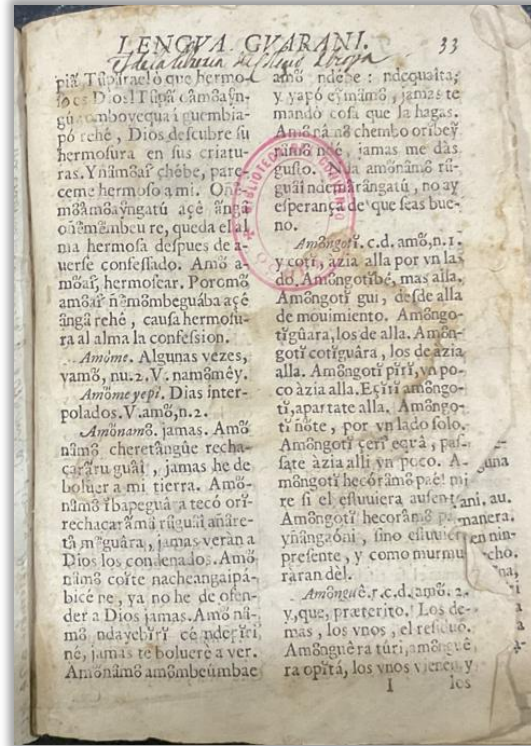 LENGVA GVARANI. 33
Es de la libreria del
piâ Tûpâraeló que hermo-
so es Dios! Tûpâ câmôaȳn-
gú ombovequaá guembia-
pó rehé, Dios descubre su
hermosura en sus criatu-
ras. Ynâmôaî chébe, pare-
ceme hermoso a mi. Oñe-
môâmôaȳngatú açê ânga
oñemômbeu re, queda el al
ma hermosa despues de a-
uerse confessado. Amô a-
môaî, hermosear. Poromô
amôaî ñemômbeguába açê
ângâ rehé, causa hermosu-
ra al alma la confession.
Amôme. Algunas vezes,
yamô, nu. 2. V. namômêy.
Amôme yepi. Dias inter-
polados. V. amô, n. 2.
Amônamô. jamas. Amô
nâmô cheretângûe recha-
caráru guâi, jamas he de
boluer a mi tierra. Amô-
nâmô îbapeguára tecó orî-
rechacarâmâ rûguâi añâre-
tâ mêguâra, jamas veràn a
Dios los condenados. Amô
nâmô coîte nacheangaipá-
bicé ne, ya no he de ofen-
der a Dios jamas. Amô nâ-
mô ndayebîrî cé nderîrî
né, jamas te boluere a ver.
Amônâmô amômbeúmbae
amô ndébe: ndequaîta;
y yapó eȳmâmô, jamas te
mandò cosa que la hagas.
Amô nâmô chembo orîbeȳ
râmô noé, jamas me dàs
gusto. amônâmô rû-
guâi ndemârângatú, no ay
esperança de que seas bue-
no.
Amôngotî. c. d. amô, n. 1.
y cotî, àzia alla por vn la-
do. Amôngotîbé, mas alla.
Amôngotî gui, desde alla
de mouimiento. Amôngo-
tîgûara, los de alla. Amôn-
gotî cotîguâra, los de àzia
alla. Amôngotî pîrî, vn po-
co àzia alla. Eçîrî amôngo-
tî, apartate alla. Amôngo-
tî ñôte, por vn lado solo.
Amôngotî çerî equâ, pas-
sate àzia alli vn poco. A-
môngotî hecórâmô paé! mi
re si el estuuiera ausente.
Amôngotî hecorâmô
ynângaóni, sino estuuiera
presente, y como murmu
ràran dèl.
Amônguê. r. c. d. amô. 2.
y, que, præterito. Los de-
mas, los vnos, el residuo.
Amônguêra túri, amônguê
ra opîtá, los vnos vienen, y
I los
guna
ani. au.
manera.
en nin-
cho.